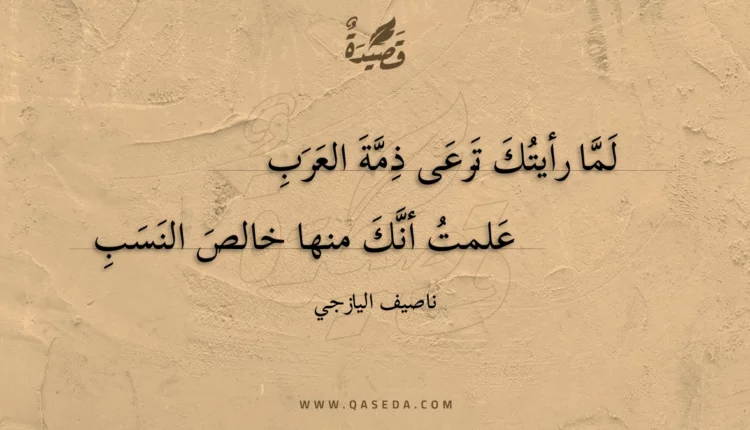 قَصِيْدَةٌ
لَمَّا رأيتُكَ تَرعَى ذِمَّةَ العَرَبِ
عَلمتُ أنَّكَ منها خالصَ النَسَبِ
ناصيف اليازجي
WWW.QASEDA.COM